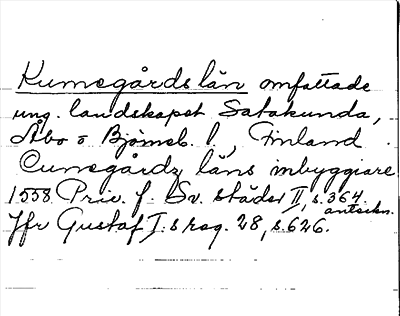 Kumogårds län omfattade
ung. landskapet Satakunda,
Åbo o Björneb. l., Finland.
Cumogårdz läns inbyggiare
1558 Priv. f. Sv. städer II, s. 364.
antekn.
Jfr Gustaf I:s reg. 28, s. 626.